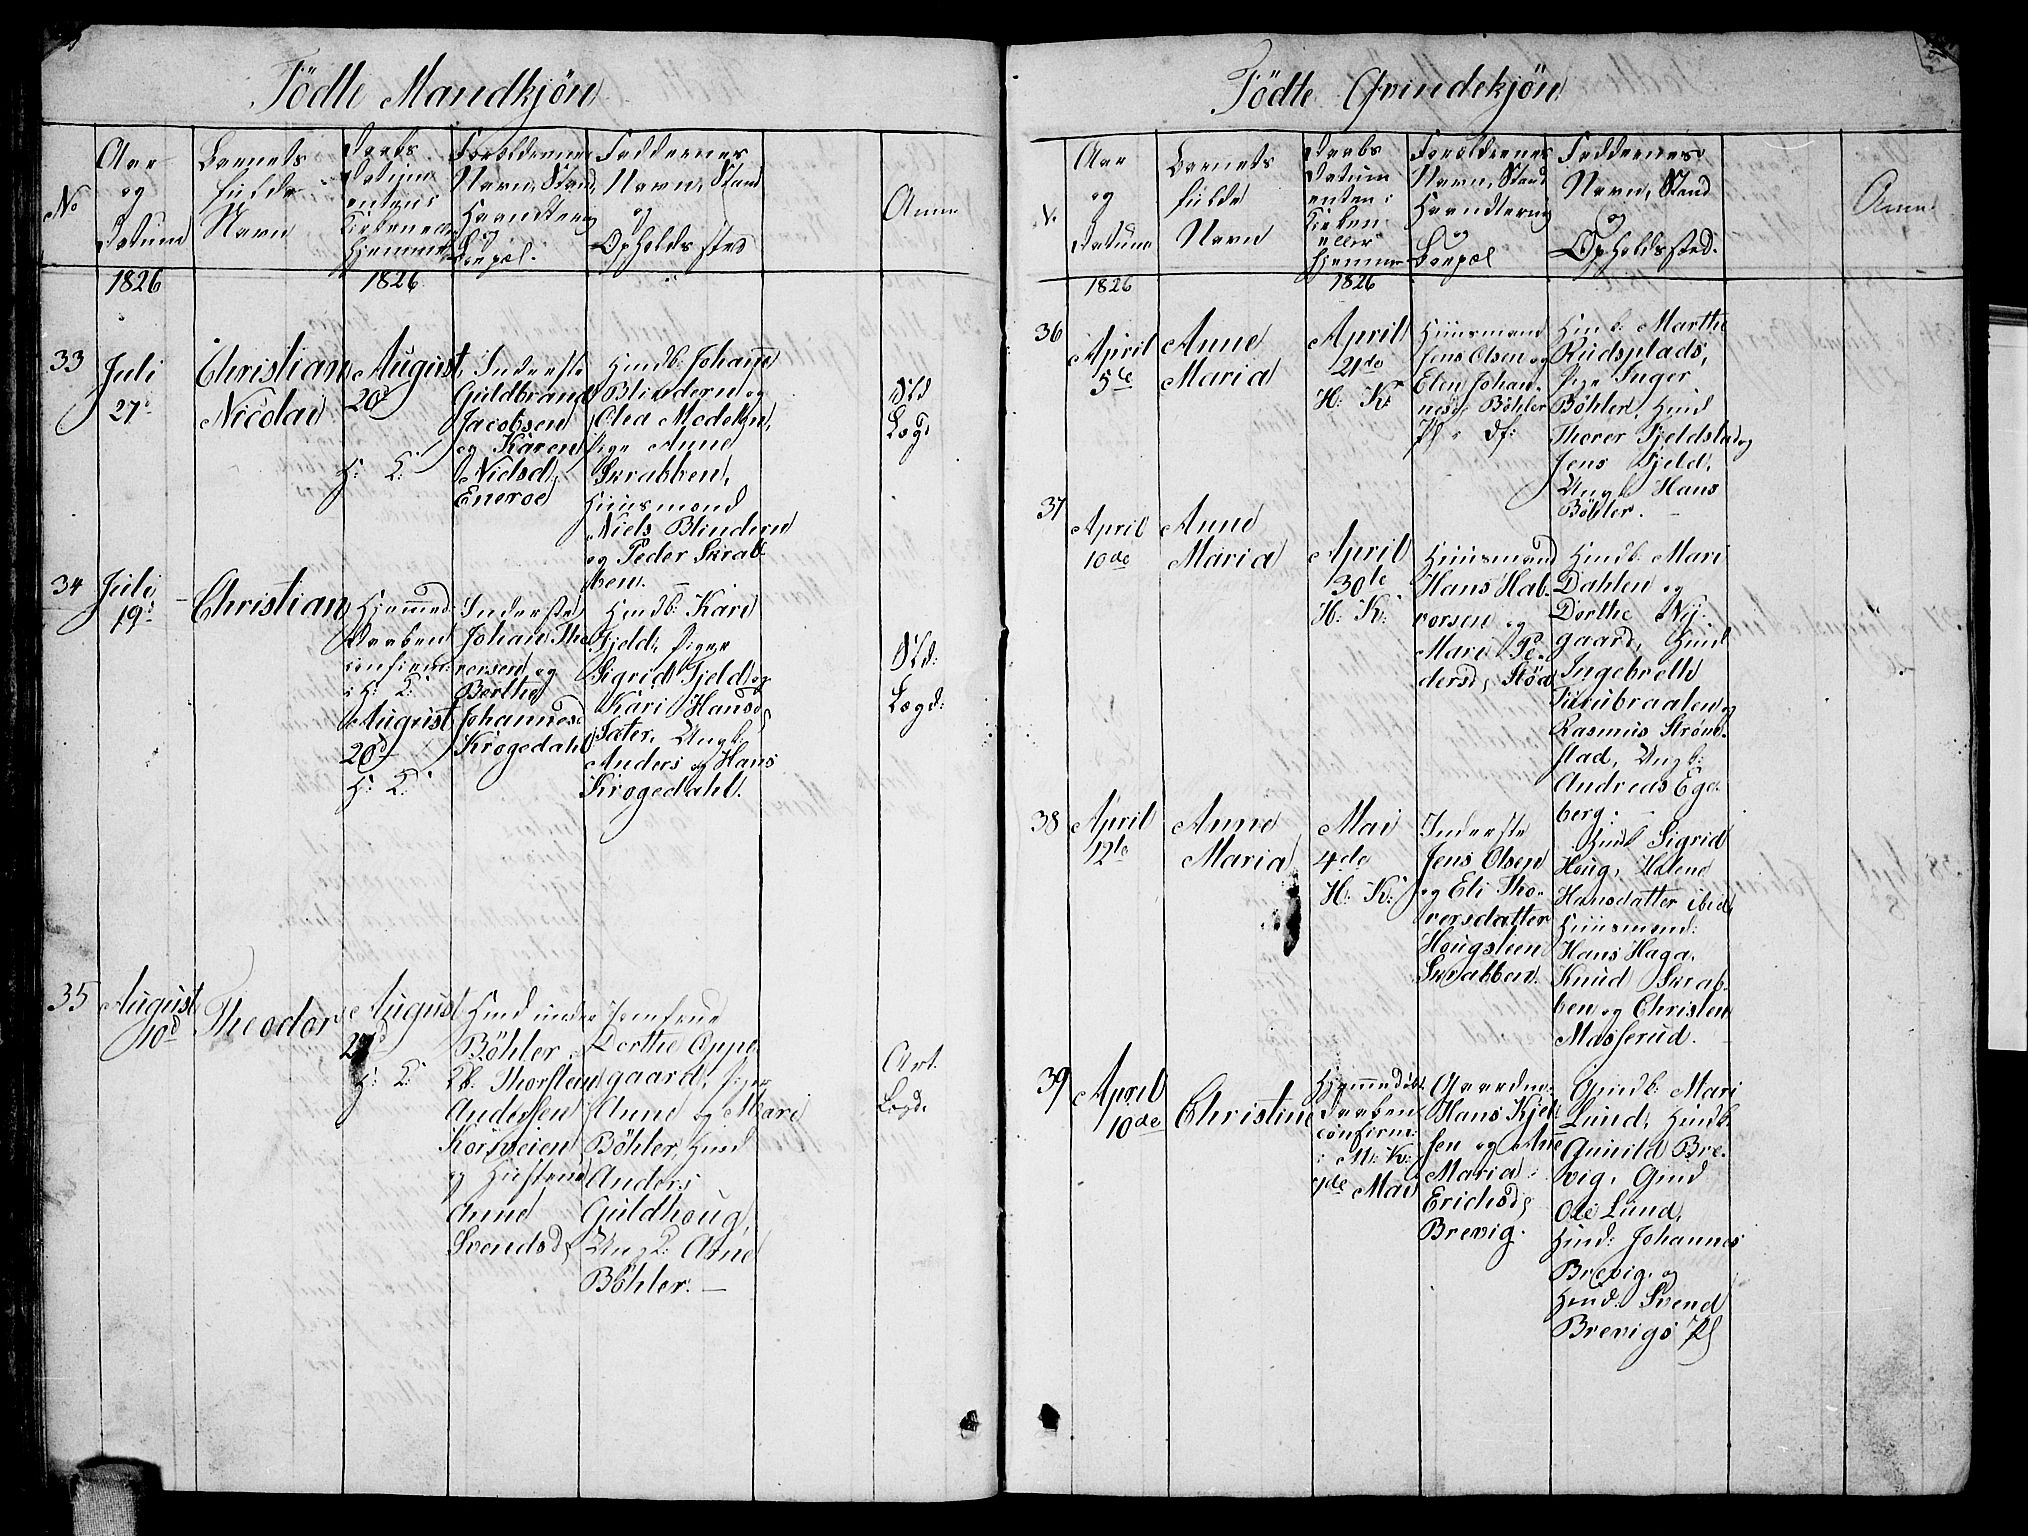 Födte Mandkjön
No
Aar
og
Datum
Barnets
fulde
Navn
Daabs
Datum
enten i
Kirken eller
Hjemme
Forældrenes
Navn, Stand,
Haandtering
og
Bopæl.
Faddernes
Navn, Stand
og
Opholdssted
Anm
1826
1826
33
Juli
27
Christian
Nicolai
August
20d
H: K:
Inderste
Guldbrand
Jacobsen
og Karen
Nielsd
Eneroe
Huusb: Johanne
Blindern og
Olea Medekun,
Pige Anne
Skrabben,
Huusmænd
Niels Blindern
og Peder Skrab
ben.
Øld
Lægd
34
Juli
19
Christian
Hjemmed:
Daaben
confirm:
i H: K:
August
20d
H: K:
Inderste
Johan Tho
rersen og
Berthe
Johannesd
Krogedahl
Huusb: Kari
Fjeld, Piger
Sigrid Fjeld og
Kari Hansd
Sæter, Ungk:
Anders og Hans
Krogedahl.
Øld:
Lægd:
35
August
10d
Theodor
August
27d
H: K:
Huusm: under
Böhler
Thorsten
Andersen
Korsveien
og Hustrue
Anne
Svendsd
Jomfrue
Dorthe Oppe
gaard, Piger
Anne og Mari
Böhler, Huusm
Anders
Guldhoug,
Ungk: Arne
Böhler. —
Art.
Lægd.
Födte Qvindekjön
N.
Aar
og
Datum
Barnets
fulde
Navn
Daabs
Datum
enten i
Kirken
eller
Hjemme
Forældrenes
Navn, Stand
Haandtering
og
Bopæl
Faddernes
Navn, Stand
og
Opholdssted.
Anm
1826
1826
36
April
5te
Anne
Maria
April
21de
H: K:
Huusmand
Jens Olsen og
Elen Johan-
nesd: Böhler
Huusb: Marthe
Rudsplads,
Pige Inger
Böhler, Huusm
Thorer Fjeldstad og
Jens Fjeld,
Ungk Hans
Böhler.
37
April
10de
Anne
Maria
April
30te
H: K:
Huusmand
Hans Hal-
vorsen og
Mari Pe-
dersd, Stöa
Huusb: Mari
Dahlen og
Dorthe Ny-
gaard, Huusm
Ingebreth
Stuubraaten og
Rasmus Ström-
stad, Ungk:
Andreas Ege-
berg.
38
April
12te
Anne
Maria
Mai
4de
H: K:
Inderste
Jens Olsen
og Eli Tho-
versdatter
Hougstien
Skrabben.
Huusb Sigrid
Houg, Helene
Hansdatter ibid,
Huusmænd:
Hans Haga,
Knud Skrab-
ben og Christen
Masserud.
39
April
10de
Christine
Hjemmedöbt
Daaben
confirm:
i Mr: K:
7de Mai
Gaardm:
Hans Kjel-
sen og Ane
Maria
Erichsd,
Brevig.
Gmdk: Mari
Lund, Huusk:
Gunild Bre-
vig, Gmd
Ole Lund,
Huusm: Johannes
Brevig, og
Huusm: Svend
Brevigs Pl